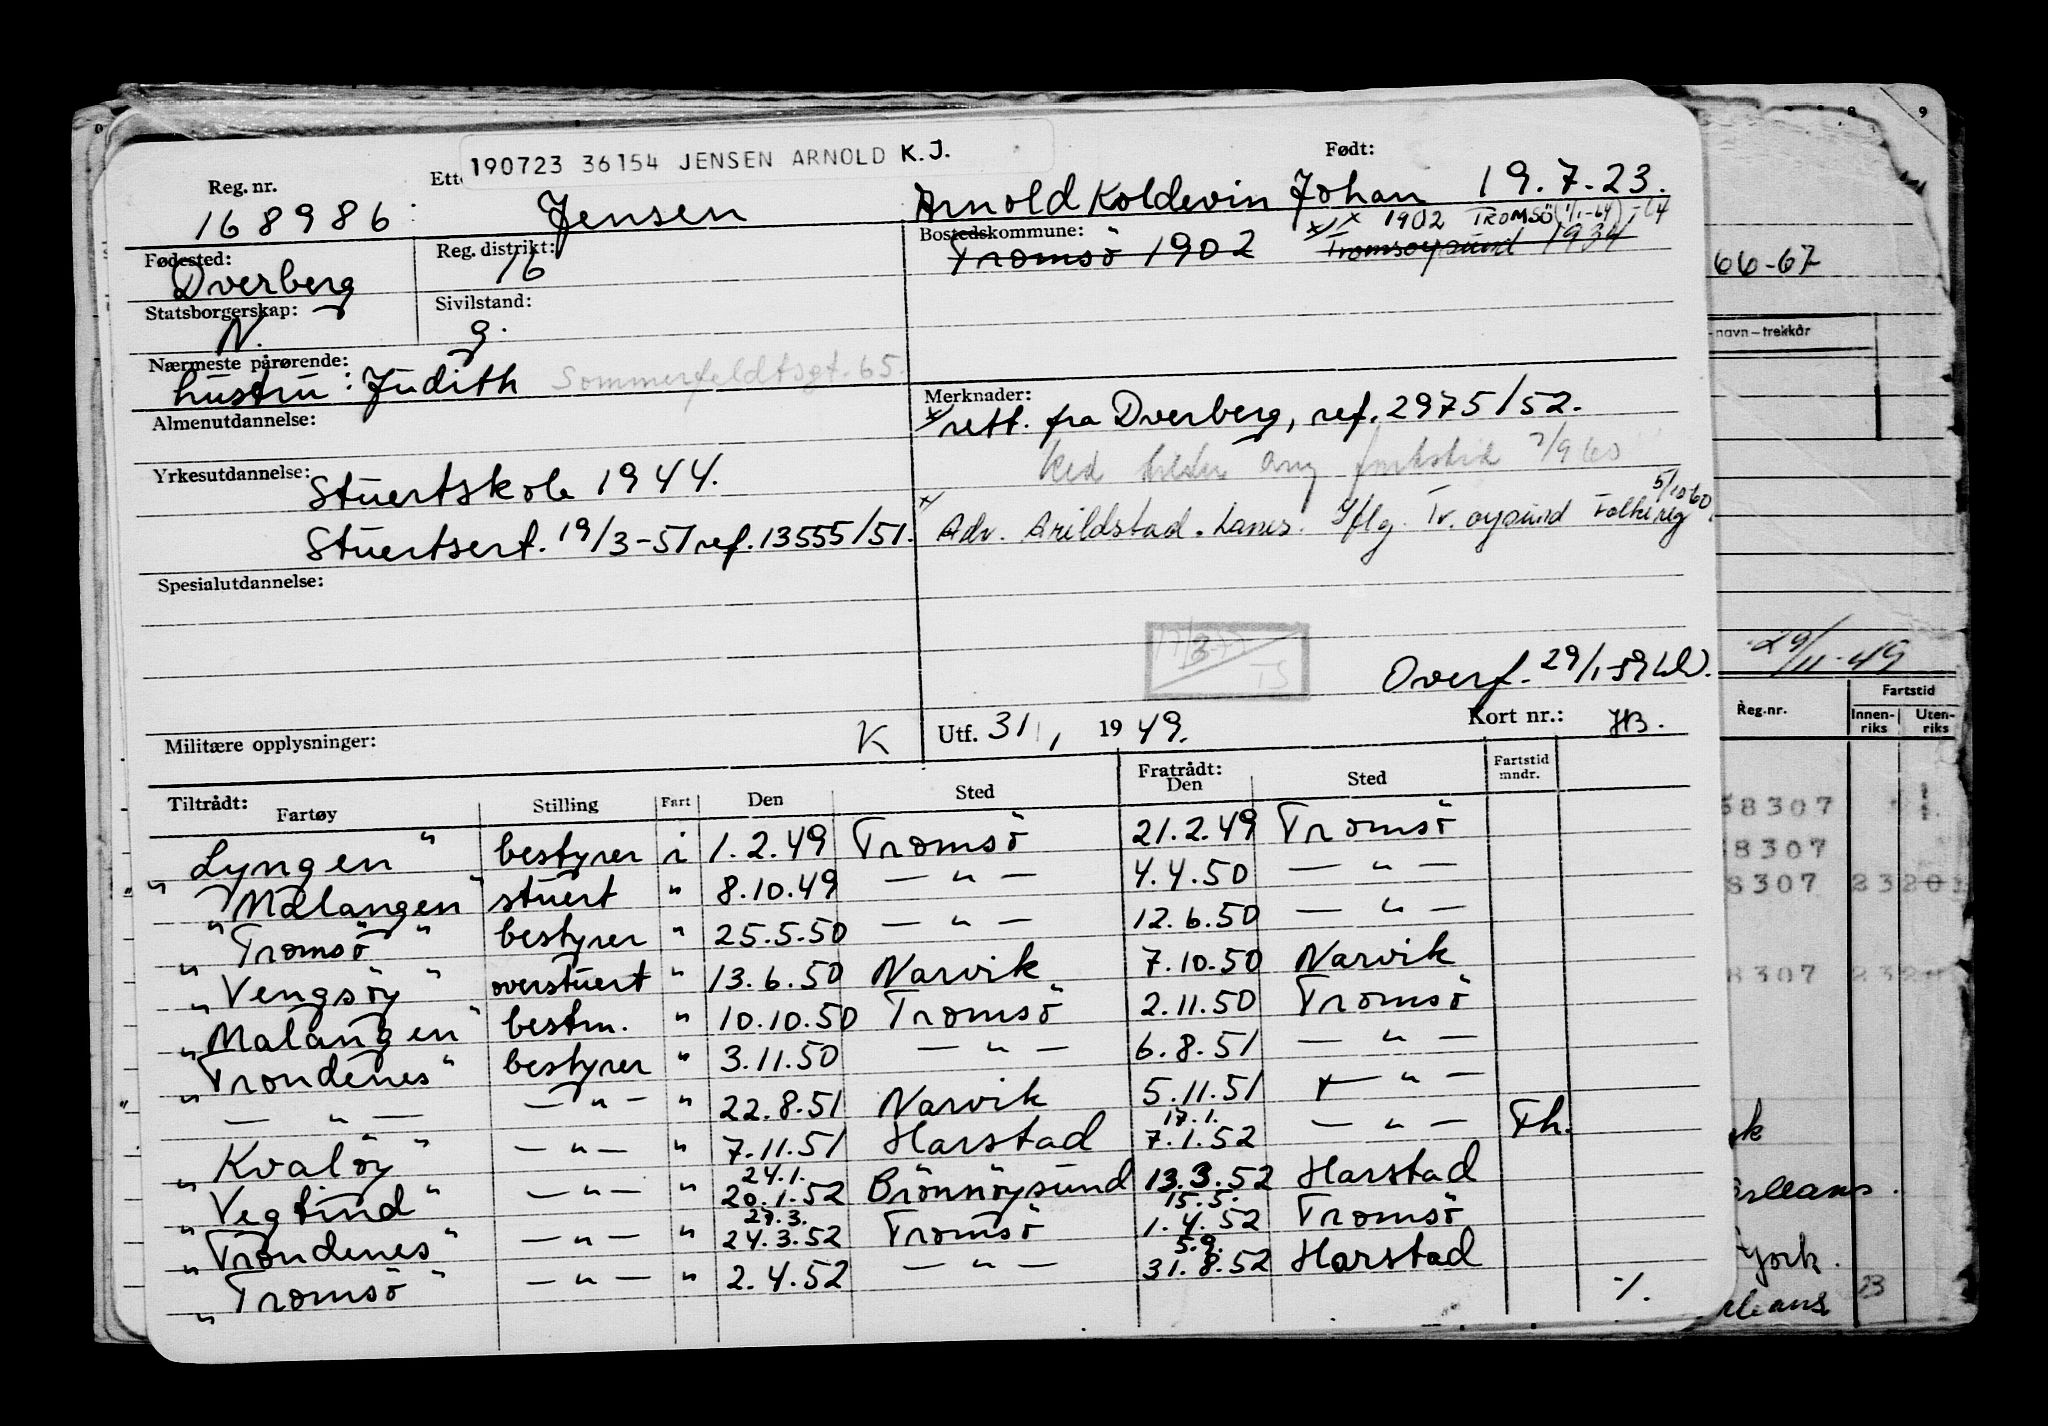 190723 36154 JENSEN ARNOLD K.J.
Reg. nr. Født:
168986 Jensen Arnold Koldevin Johan 19.7.23.
Fødested: Reg. distrikt: Bostedskommune: 1902 TROMSÖ (1/1-64)
Dverberg 16 Tromsö 1902 Tromsøysund 1934
Statsborgerskap: Sivilstand:
N. g.
Nærmeste pårørende:
hustru: Judith Sommerfeldtsgt. 65.
Almenutdannelse: Merknader:
x/ rett. fra Dverberg, ref. 2975/52.
Yrkesutdannelse: Stuertskole 1944. 7/9 60
Stuertsert. 19/3-51 ref. 13555/51. x/ Adv. Arildstad. Iflg. Tr. øysund Folkereg 5/10 60.
Spesialutdannelse:
TS
Overf. 29/1-59
Militære opplysninger: K Utf. 31/1 1949. Kort nr.: HB.
Tiltrådt: Fratrådt: Fartstid mndr.
Fartøy Stilling Fart Den Sted Den Sted
"Lyngen" bestyrer i 1.2.49 Tromsö 21.2.49 Tromsö
"Malangen" stuert " 8.10.49 — " — 4.4.50 — " —
"Tromsö" bestyrer " 25.5.50 — " — 12.6.50 — " —
"Vengsöy" overstuert " 13.6.50 Narvik 7.10.50 Narvik
"Malangen" bestm. " 10.10.50 Tromsö 2.11.50 Tromsö
"Trondenes" bestyrer " 3.11.50 — " — 6.8.51 — " —
— " — — " — " 22.8.51 Narvik 5.11.51 — " —
17.1.
"Kvalöy" — " — " 7.11.51 Harstad 7.1.52 — " — Fh.
24.1.
"Vegtind" — " — " 20.1.52 Brönnöysund 13.3.52 Harstad
27.3. 15.5.
"Trondenes" — " — " 24.3.52 Tromsö 1.4.52 Tromsö
5.9.
"Tromsö" — " — " 2.4.52 — " — 31.8.52 Harstad
./.
66-67
navn – trekkår
29/11-49
Reg.nr. Fartstid
Innen-riks Uten-riks
8307
8307
8307 23201
8307
23